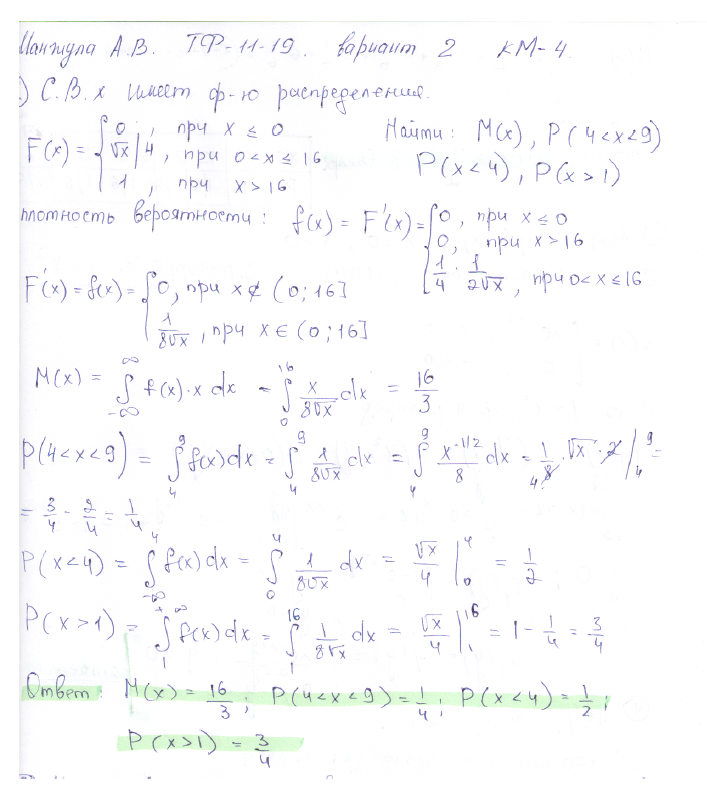 Манжула А.В. ТФ-11-19. вариант 2 КМ-4.
.) С.В. x имеет ф-ю распределения.
F(x) = { 0, при x ≤ 0
√x/4, при 0 < x ≤ 16
1, при x > 16
Найти: M(x), P(4<x<9)
P(x<4), P(x>1)
плотность вероятности: f(x) = F'(x) = { 0, при x ≤ 0
0, при x > 16
1/4 · 1/(2√x), при 0 < x ≤ 16
F'(x) = f(x) = { 0, при x ∉ (0;16]
1/(8√x), при x ∈ (0;16]
M(x) = ∫_{-∞}^{∞} f(x)·x dx = ∫_0^16 x/(8√x) dx = 16/3
P(4<x<9) = ∫_4^9 f(x)dx = ∫_4^9 1/(8√x) dx = ∫_4^9 x^{-1/2}/8 dx = 1/8 4 · √x · 2 |_4^9 =
= 3/4 - 2/4 = 1/4
P(x<4) = ∫_{-∞}^4 f(x)dx = ∫_0^4 1/(8√x) dx = √x/4 |_0^4 = 1/2
P(x>1) = ∫_1^{+∞} f(x)dx = ∫_1^16 1/(8√x) dx = √x/4 |_1^16 = 1 - 1/4 = 3/4
Ответ: M(x) = 16/3; P(4<x<9) = 1/4; P(x<4) = 1/2;
P(x>1) = 3/4